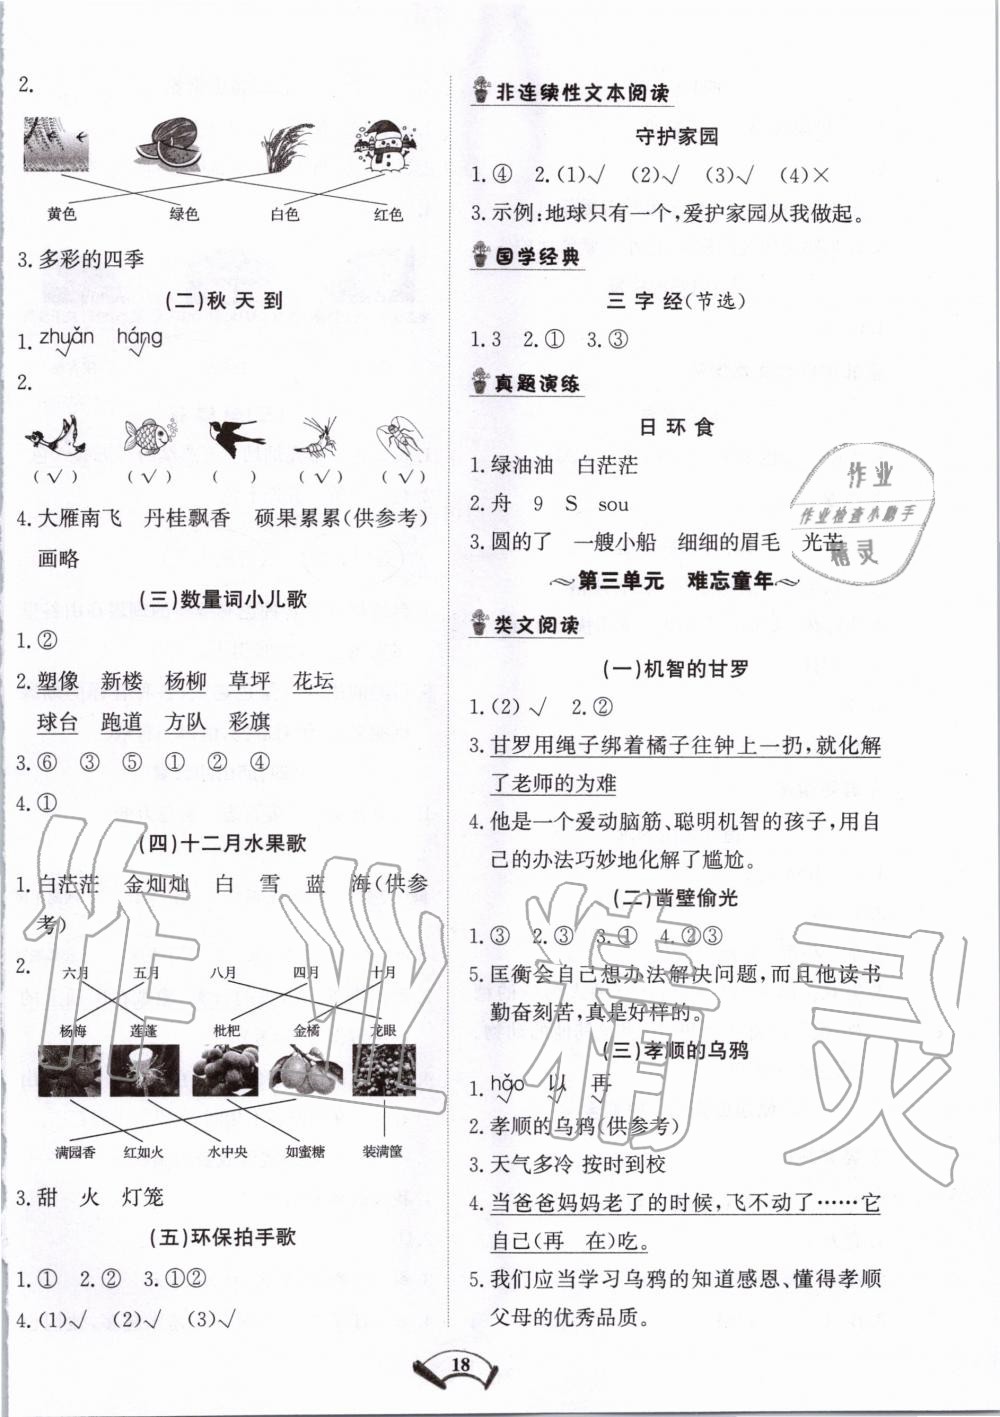 2.
黄色 绿色 白色 红色
3. 多彩的四季
(二)秋天到
1. zhuǎn háng
2.
(√) (√) ( ) (√) (√)
4. 大雁南飞 丹桂飘香 硕果累累(供参考)
画略
(三)数量词小儿歌
1. ②
2. 塑像 新楼 杨柳 草坪 花坛
球台 跑道 方队 彩旗
3. ⑥ ③ ⑤ ① ② ④
4. ①
(四)十二月水果歌
1. 白茫茫 金灿灿 白 雪 蓝 海(供参
考)
2.
六月 五月 八月 四月 十月
杨梅 莲蓬 枇杷 金橘 龙眼
满园香 红如火 水中央 如蜜糖 装满筐
3. 甜 火 灯笼
(五)环保拍手歌
1. ① 2. ② 3. ①②
4. (1)√ (2)√ (3)√
非连续性文本阅读
守护家园
1. ④ 2. (1)√ (2)√ (3)√ (4)×
3. 示例:地球只有一个,爱护家园从我做起。
国学经典
三字经(节选)
1. 3 2. ① 3. ③
真题演练
日环食
1. 绿油油 白茫茫
2. 舟 9 S sou
3. 圆的了 一艘小船 细细的眉毛 光芒
第三单元 难忘童年
类文阅读
(一)机智的甘罗
1. (2) √ 2. ②
3. 甘罗用绳子绑着橘子往钟上一扔,就化解
了老师的为难
4. 他是一个爱动脑筋、聪明机智的孩子,用自
己的办法巧妙地化解了尴尬。
(二)凿壁偷光
1. ③ 2. ③ 3. ① 4. ②③
5. 匡衡会自己想办法解决问题,而且他读书
勤奋刻苦,真是好样的。
(三)孝顺的乌鸦
1. hǎo 以 再
2. 孝顺的乌鸦(供参考)
3. 天气多冷 按时到校
4. 当爸爸妈妈老了的时候,飞不动了……它
自己(再 在)吃。
5. 我们应当学习乌鸦的知道感恩、懂得孝顺
父母的优秀品质。
18
作业
作业检查小助手
精灵
作业精灵